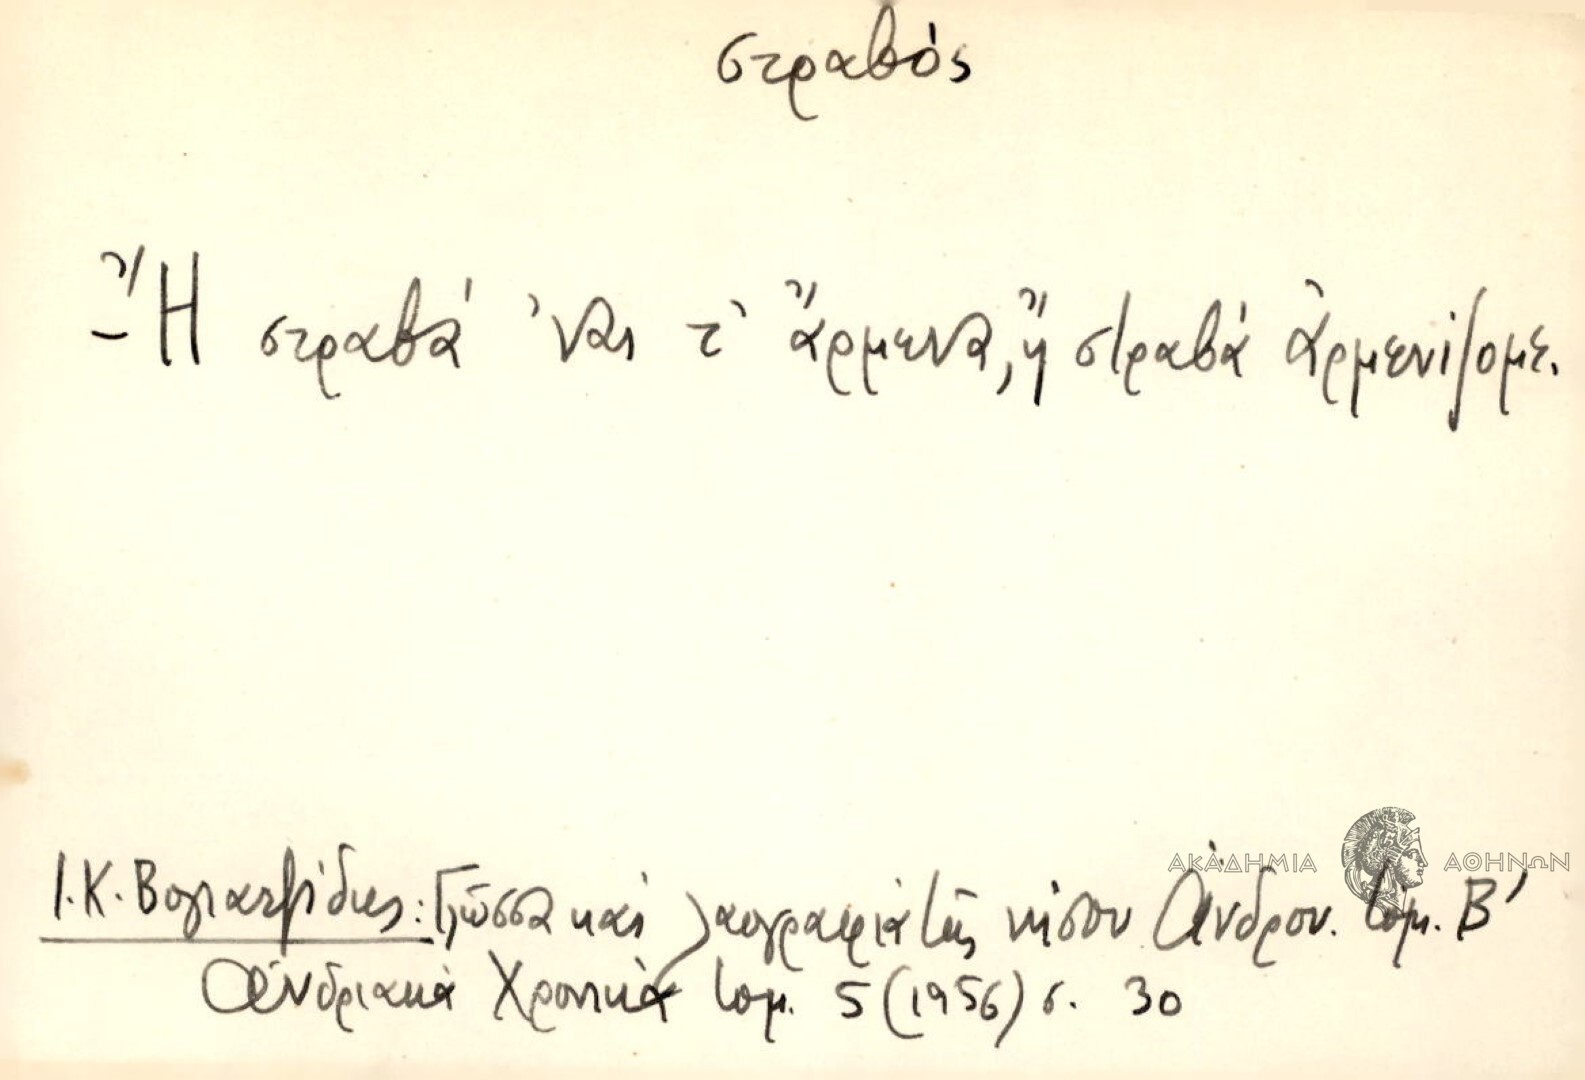 στραβός
– Ἤ στραβά 'ναι τ' ἄρμενα, ἤ στραβά ἀρμενίζομε.
ΑΚΑΔΗΜΙΑ ΑΘΗΝΩΝ
Ι. Κ. Βογιατζίδης: Γλῶσσα καὶ λαογραφία τῆς νήσου Ἄνδρου. τομ. Β'
Ἀνδριακὰ Χρονικὰ τομ. 5 (1956) σ. 30